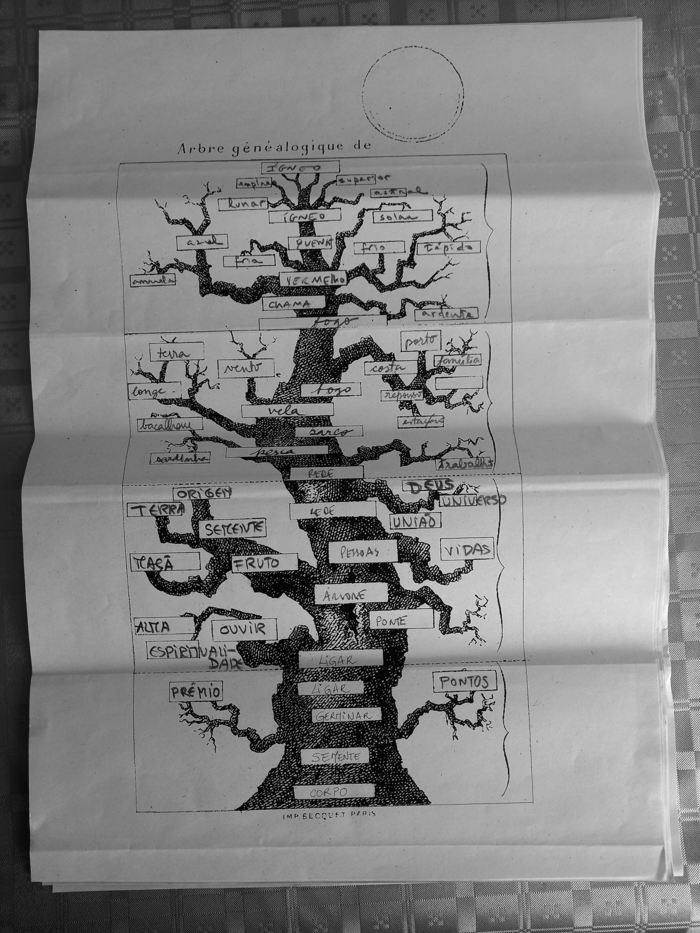 Arbre généalogique de
ÍGNEO
superior
astral
lunar
ÍGNEO
solar
azul
QUENTE
fria
fria
tépido
amarela
VERMELHO
CHAMA
ardente
fogo
terra
vento
porto
costa
família
longe
fogo
repouso
vela
bacalhau
estaleiro
barco
sardinha
pesca
trabalho
REDE
ORIGEM
DEUS
TERRA
UNIVERSO
SEMENTE
REDE
UNIÃO
MAÇÃ
FRUTO
PESSOAS
VIDAS
ÁRVORE
ALMA
OUVIR
PONTE
ESPIRITUALI-
DADE
LIGAR
PRÉMIO
LIGAR
PONTOS
GERMINAR
SEMENTE
CORPO
IMP. BECQUET PARIS